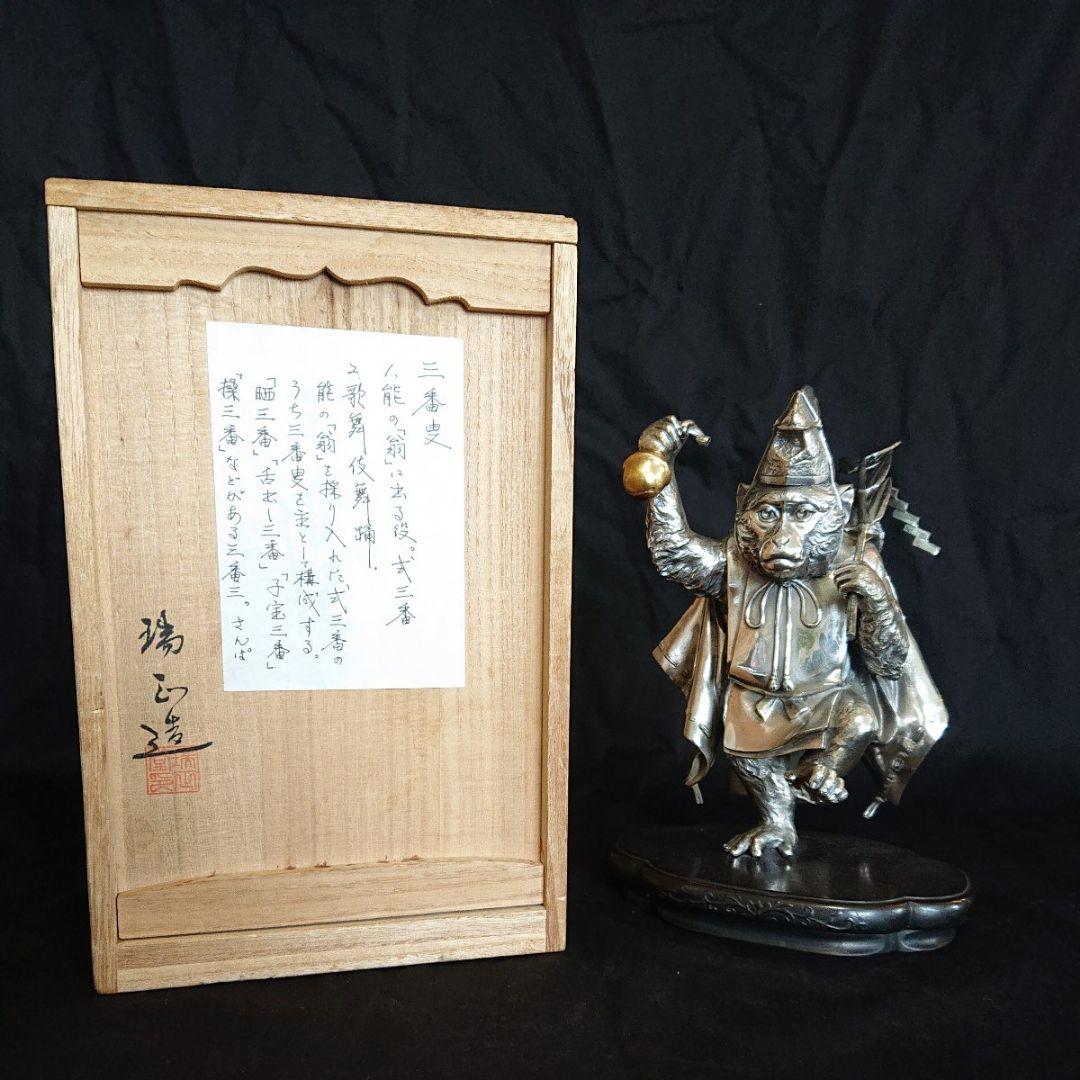 三番叟
1、能の「翁」に出る役。式三番
2、歌舞伎舞踊。
能の「翁」を採り入れた式三番の
うち三番叟を主として構成する。
「晒三番」「舌出し三番」「子宝三番」
「操三番」などがある三番三。さんば。
瑞正造